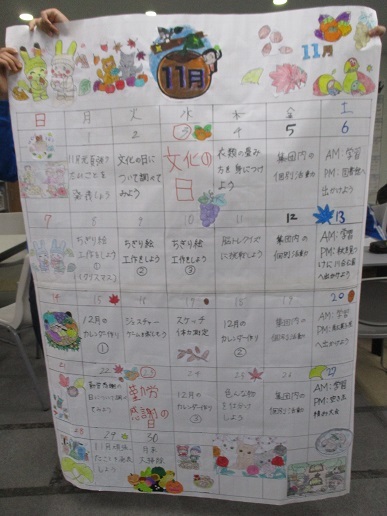 11月
11月
日 月 火 水 木 金 土
1 2 3 4 5 6
文化の日に
ついて調べて
みよう
文化の
日
集団内の
個別活動
AM:学習
PM:図書館へ
出かけよう
7 8 9 10 11 12 13
ちぎり絵
工作をしよう
①
(クリスマス)
ちぎり絵
工作をしよう
②
ちぎり絵
工作をしよう
③
脳トレクイズ
に挑戦しよう
集団内の
個別活動
AM:学習
へ出かけよう
14 15 16 17 18 19 20
12月の
カレンダー作り
①
ジェスチャー
ゲームを楽しもう
スケッチ
体力測定
12月の
カレンダー作り
②
集団内の
個別活動
AM:学習
へ出かけよう
21 22 23 24 25 26 27
勤労
感謝の
日
12月の
カレンダー作り
③
色んな物
を仕分け
しよう
集団内の
個別活動
AM:学習
28 29 30
しよう
月末
大掃除